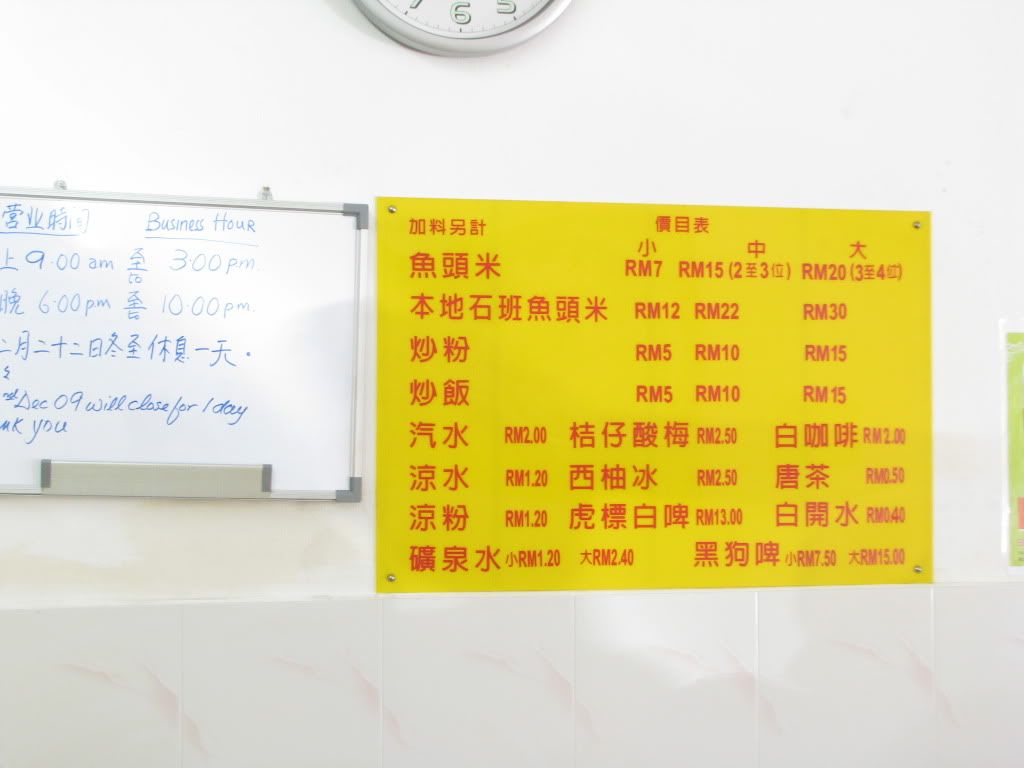 6 5
营业時间 Business Hour
上 9.00 am 至 to 3:00 pm.
晚 6.00 pm 至 10.00 pm.
二月二十二日冬至休息一天.
Dec 09 will close for 1 day
you
加料另計 價目表
小 中 大
魚頭米 RM7 RM15 (2至3位) RM20 (3至4位)
本地石班魚頭米 RM12 RM22 RM30
炒粉 RM5 RM10 RM15
炒飯 RM5 RM10 RM15
汽水 RM2.00 桔仔酸梅 RM2.50 白咖啡 RM2.00
涼水 RM1.20 西柚冰 RM2.50 唐茶 RM0.50
涼粉 RM1.20 虎標白啤 RM13.00 白開水 RM0.40
礦泉水 小RM1.20 大RM2.40 黑狗啤 小RM7.50 大RM15.00